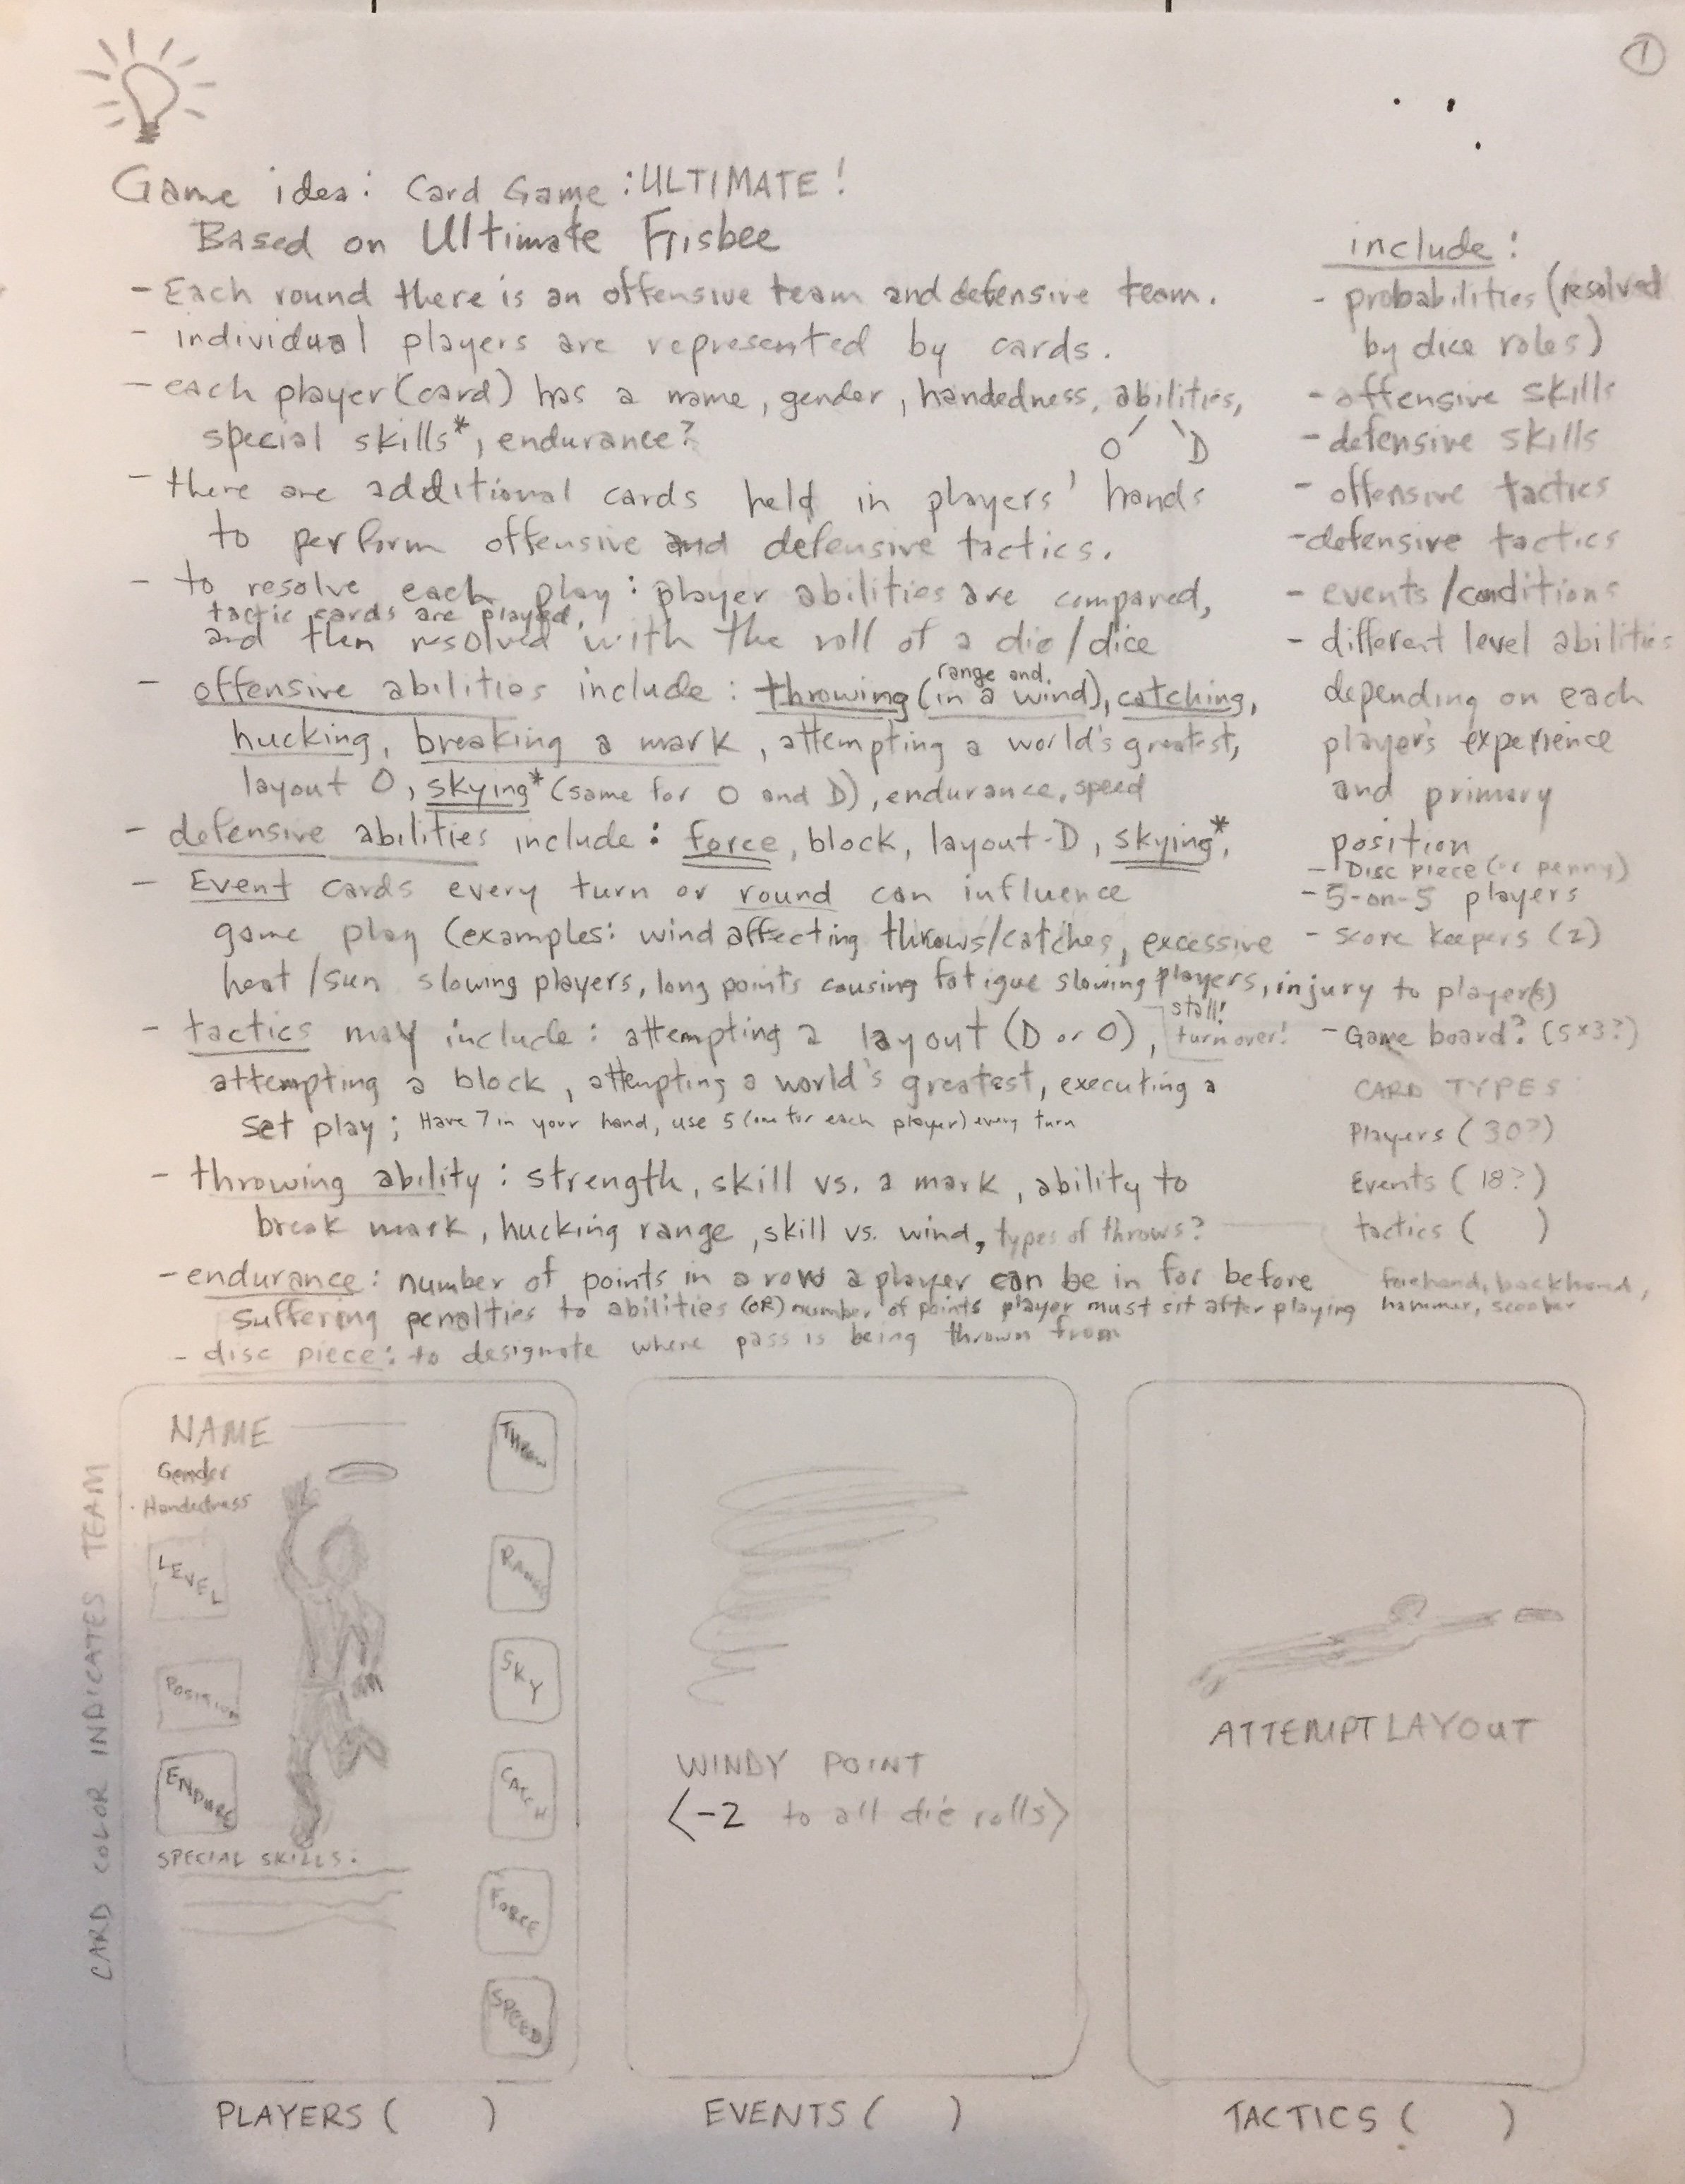 1
Game idea: Card Game: ULTIMATE!
Based on Ultimate Frisbee
- Each round there is an offensive team and defensive team.
- individual players are represented by cards.
- each player (card) has a name, gender, handedness, abilities,
O D
special skills*, endurance?
- there are additional cards held in players' hands
to perform offensive and defensive tactics.
- to resolve each play: player abilities are compared,
tactic cards are played,
and then resolved with the roll of a die/dice
- offensive abilities include: throwing (in a wind), catching,
range and
hucking, breaking a mark, attempting a world's greatest,
layout O, skying* (same for O and D), endurance, speed
- defensive abilities include: force, block, layout-D, skying*,
- Event cards every turn or round can influence
game play (examples: wind affecting throws/catches, excessive
heat/sun slowing players, long points causing fatigue slowing players, injury to player(s)
- tactics may include: attempting a layout (D or O),
stall!
turnover!
attempting a block, attempting a world's greatest, executing a
set play; Have 7 in your hand, use 5 (one for each player) every turn
- throwing ability: strength, skill vs. a mark, ability to
break mark, hucking range, skill vs. wind, types of throws?
forehand, backhand,
hammer, scoober
- endurance: number of points in a row a player can be in for before
suffering penalties to abilities (OR) number of points player must sit after playing
- disc piece: to designate where pass is being thrown from
include:
- probabilities (resolved
by dice roles)
- offensive skills
- defensive skills
- offensive tactics
- defensive tactics
- events/conditions
- different level abilities
depending on each
player's experience
and primary
position
- Disc piece (or penny)
- 5-on-5 players
- score keepers (2)
- Game board? (5x3?)
CARD TYPES
Players (30?)
Events (18?)
tactics ( )
CARD COLOR INDICATES TEAM
NAME
Gender
Handedness
LEVEL
POSITION
ENDURE
SPECIAL SKILLS:
THROW
RANGE
SKY
CATCH
FORCE
SPEED
PLAYERS ( )
WINDY POINT
<-2 to all die rolls>
EVENTS ( )
ATTEMPT LAYOUT
TACTICS ( )